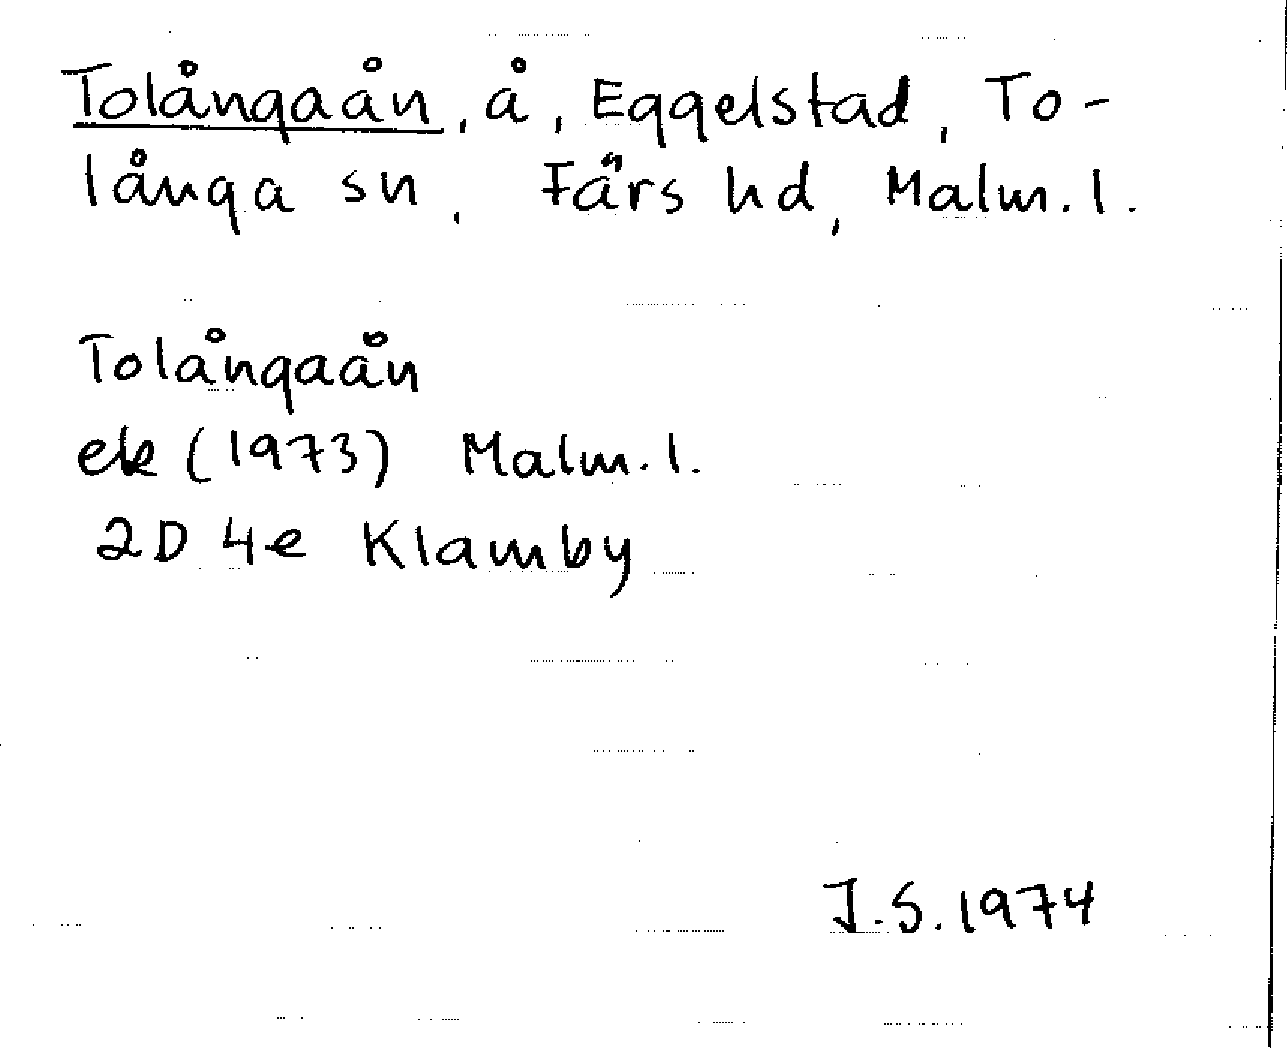 Tolångaån, å, Eggelstad, To-
långa sn, Färs hd, Malm. l.
Tolångaån
ek (1973) Malm. l.
2D 4e Klamby
J.S. 1974